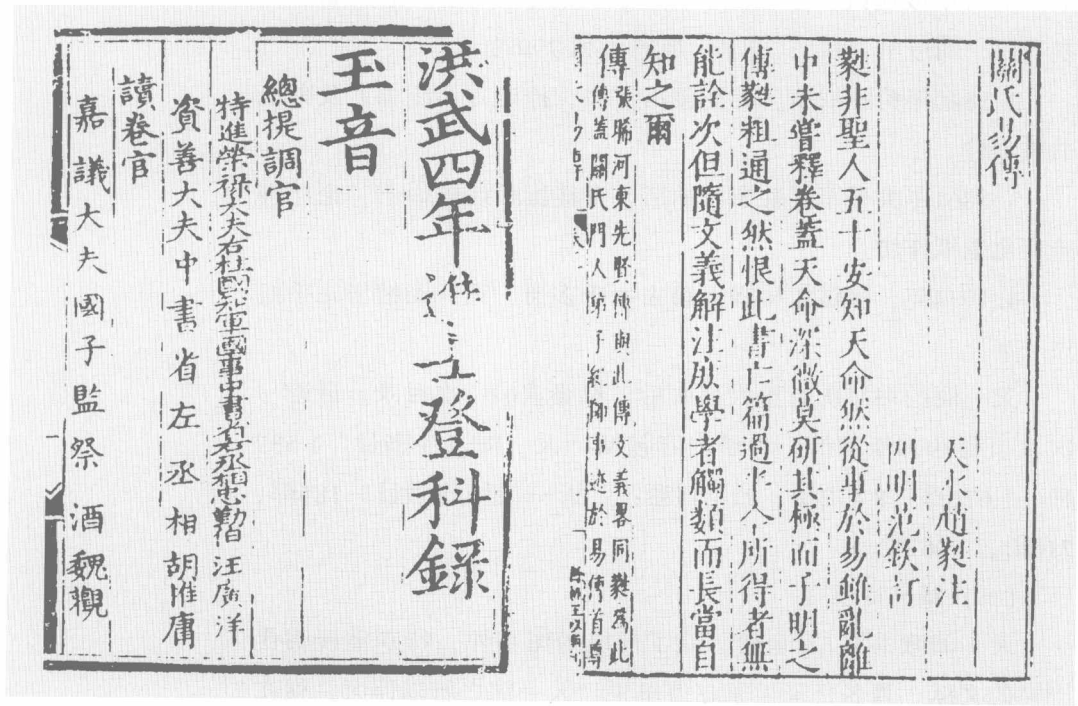 關氏易傳
天水趙蕤注
四明范欽訂
蕤非聖人五十安知天命然從事於易雖亂離
中未嘗釋卷蓋天命深微莫研其極而子明之
傳蕤粗通之然恨此書亡篇過半今所得者無
能詮次但隨文義解注庶學者觸類而長當自
知之爾
傳張晞河東先賢傳與此傳文義畧同蕤爲此
傳蓋關氏門人弟子紀師事迹於易傳首
洪武四年進士登科錄
玉音
總提調官
特進榮祿大夫右柱國知軍國事中書省右丞相忠勤伯汪廣洋
資善大夫中書省左丞相胡惟庸
讀卷官
嘉議大夫國子監祭酒魏觀